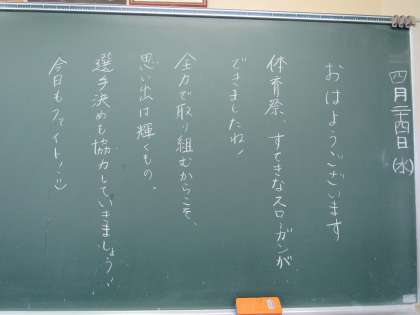 四月二十四日(水)
おはようございます
体育祭、すてきなスローガンが
できましたね!
全力で取り組むからこそ、
思い出は輝くもの。
選手決めも協力していきましょう!
今日もファイトッ!:)